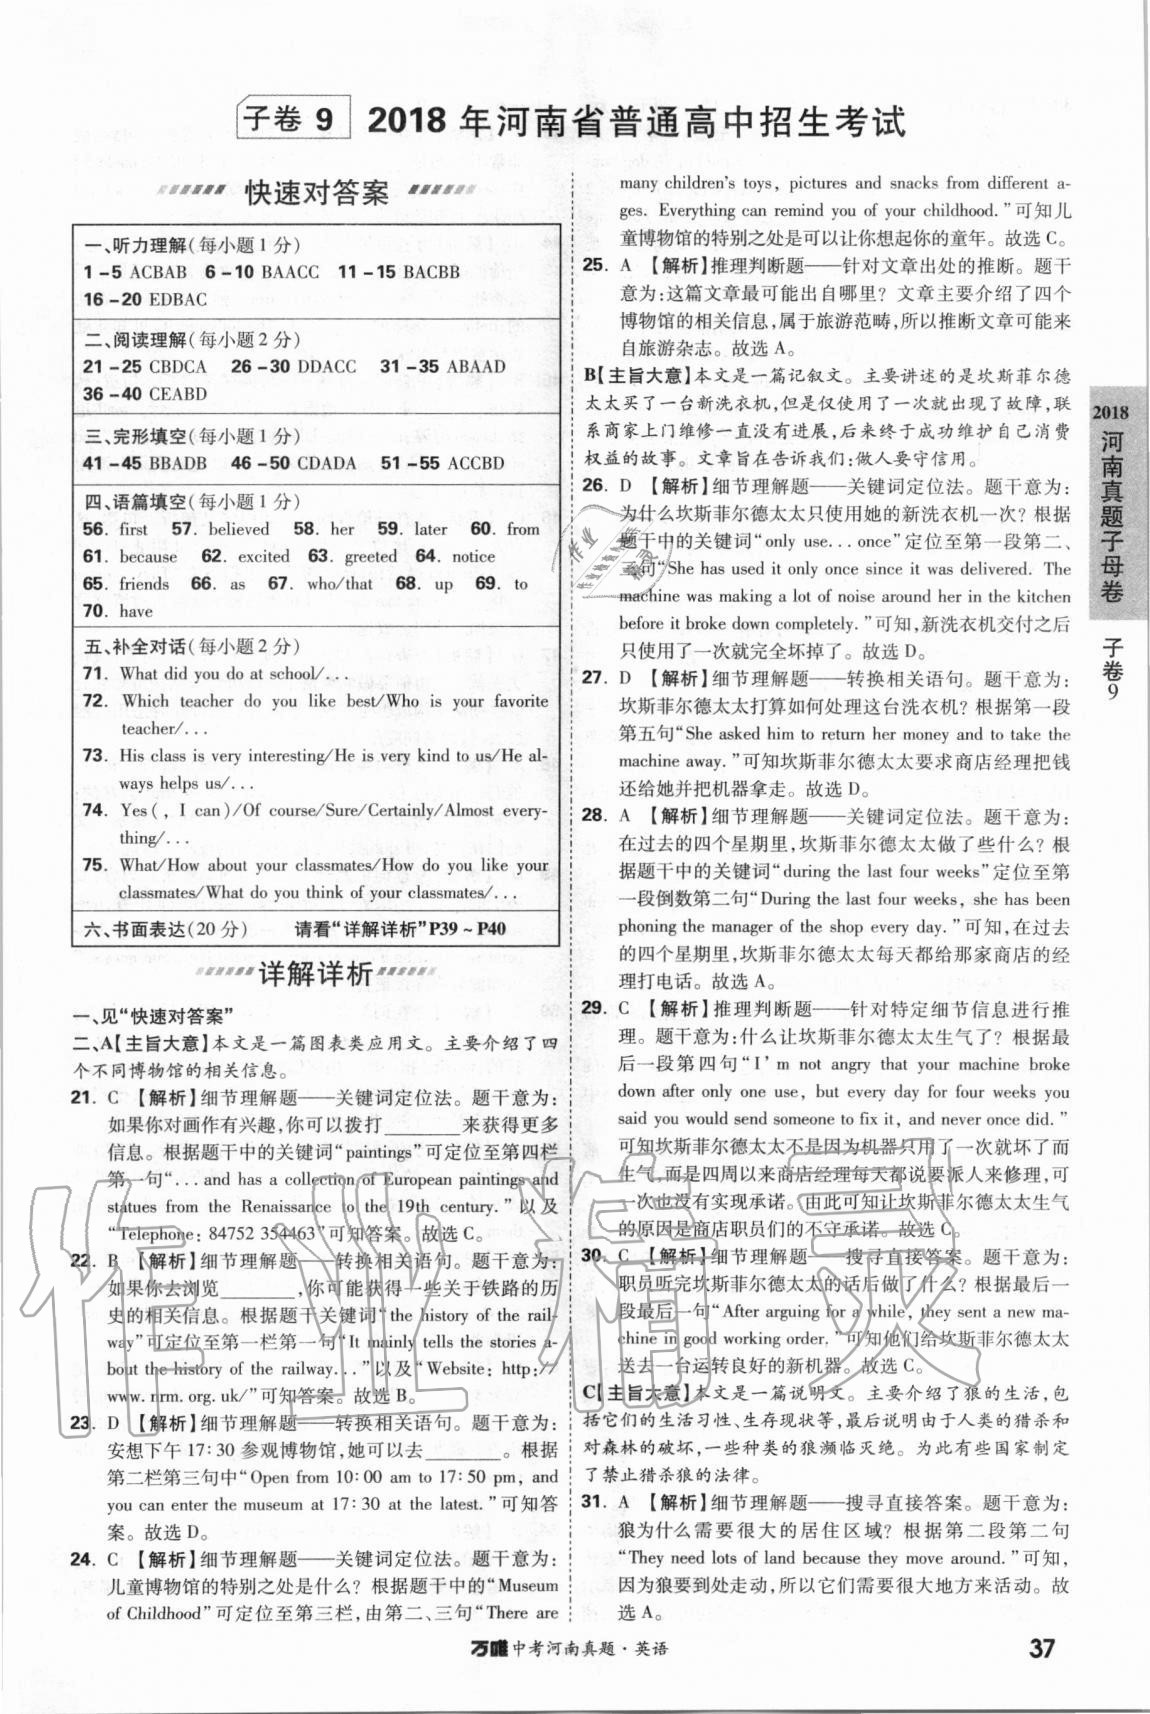 子卷 9 2018 年河南省普通高中招生考试
快速对答案
一、听力理解(每小题 1 分)
1－5 ACBAB 6－10 BAACC 11－15 BACBB
16－20 EDBAC
二、阅读理解(每小题 2 分)
21－25 CBDCA 26－30 DDACC 31－35 ABAAD
36－40 CEABD
三、完形填空(每小题 1 分)
41－45 BBADB 46－50 CDADA 51－55 ACCBD
四、语篇填空(每小题 1 分)
56. first 57. believed 58. her 59. later 60. from
61. because 62. excited 63. greeted 64. notice
65. friends 66. as 67. who/that 68. up 69. to
70. have
五、补全对话(每小题 2 分)
71. What did you do at school/. . .
72. Which teacher do you like best/Who is your favorite
teacher/. . .
73. His class is very interesting/He is very kind to us/He al-
ways helps us/. . .
74. Yes( , I can)/Of course/Sure/Certainly/Almost every-
thing/. . .
75. What/How about your classmates/How do you like your
classmates/What do you think of your classmates/. . .
六、书面表达(20 分) 请看“详解详析”P39～P40
详解详析
一、见“快速对答案”
二、A【主旨大意】本文是一篇图表类应用文。主要介绍了四
个不同博物馆的相关信息。
21. C 【解析】细节理解题——关键词定位法。题干意为:
如果你对画作有兴趣,你可以拨打________来获得更多
信息。根据题干中的关键词“paintings”可定位至第四栏
第一句“. . . and has a collection of European paintings and
statues from the Renaissance to the 19th century. ”以及
“Telephone: 84752 354463”可知答案。故选 C。
22. B 【解析】细节理解题——转换相关语句。题干意为:
如果你去浏览________,你可能获得一些关于铁路的历
史的相关信息。根据题干关键词“the history of the rail-
way”可定位至第一栏第一句“It mainly tells the stories a-
bout the history of the railway. . . ”以及“Website: http://
www. nrm. org. uk/”可知答案。故选 B。
23. D 【解析】细节理解题——转换相关语句。题干意为:
安想下午 17:30 参观博物馆,她可以去________。根据
第二栏第三句中“Open from 10:00 am to 17:50 pm, and
you can enter the museum at 17:30 at the latest. ”可知答
案。故选 D。
24. C 【解析】细节理解题——关键词定位法。题干意为:
儿童博物馆的特别之处是什么? 根据题干中的“Museum
of Childhood”可定位至第三栏,由第二、三句“There are
many children's toys, pictures and snacks from different a-
ges. Everything can remind you of your childhood. ”可知儿
童博物馆的特别之处是可以让你想起你的童年。故选 C。
25. A 【解析】推理判断题——针对文章出处的推断。题干
意为:这篇文章最可能出自哪里? 文章主要介绍了四个
博物馆的相关信息,属于旅游范畴,所以推断文章可能来
自旅游杂志。故选 A。
B【主旨大意】本文是一篇记叙文。主要讲述的是坎斯菲尔德
太太买了一台新洗衣机,但是仅用了一次就出现了故障,联
系商家上门维修一直没有进展,后来终于成功维护自己消费
权益的故事。文章旨在告诉我们:做人要守信用。
26. D 【解析】细节理解题——关键词定位法。题干意为:
为什么坎斯菲尔德太太只使用她的新洗衣机一次? 根据
题干中的关键词“only use. . . once”定位至第一段第二、
三句“She has used it only once since it was delivered. The
machine was making a lot of noise around her in the kitchen
before it broke down completely. ”可知,新洗衣机交付之后
只使用了一次就完全坏掉了。故选 D。
27. D 【解析】细节理解题——转换相关语句。题干意为:
坎斯菲尔德太太打算如何处理这台洗衣机? 根据第一段
第五句“She asked him to return her money and to take the
machine away. ”可知坎斯菲尔德太太要求商店经理把钱
还给她并把机器拿走。故选 D。
28. A 【解析】细节理解题——关键词定位法。题干意为:
在过去的四个星期里,坎斯菲尔德太太做了些什么? 根
据题干中的关键词“during the last four weeks”定位至第
一段倒数第二句“During the last four weeks, she has been
phoning the manager of the shop every day. ”可知,在过去
的四个星期里,坎斯菲尔德太太每天都给那家商店的经
理打电话。故选 A。
29. C 【解析】推理判断题——针对特定细节信息进行推
理。题干意为:什么让坎斯菲尔德太太生气了? 根据最
后一段第四句“I'm not angry that your machine broke
down after only one use, but every day for four weeks you
said you would send someone to fix it, and never once did. ”
可知坎斯菲尔德太太不是因为机器只用了一次就坏了而
生气,而是四周以来商店经理每天都说要派人来修理,可
一次也没有实现承诺。由此可知让坎斯菲尔德太太生气
的原因是商店职员们的不守承诺。故选 C。
30. C 【解析】细节理解题——搜寻直接答案。题干意为:
职员听完坎斯菲尔德太太的话后做了什么? 根据最后一
段最后一句“After arguing for a while, they sent a new ma-
chine in good working order. ”可知他们给坎斯菲尔德太太
送去一台运转良好的新机器。故选 C。
C【主旨大意】本文是一篇说明文。主要介绍了狼的生活,包
括它们的生活习性、生存现状等,最后说明由于人类的猎杀和
对森林的破坏,一些种类的狼濒临灭绝。今天有些国家制定
了禁止猎杀狼的法律。
31. A 【解析】细节理解题——搜寻直接答案。题干意为:
狼为什么需要很大的居住区域? 根据第二段第二句
“They need lots of land because they move around. ”可知,
因为狼要到处走动,所以它们需要很大地方来活动。故
选 A。
2018
河南真题子母卷
子卷9
作业精灵
万唯中考河南真题·英语
37